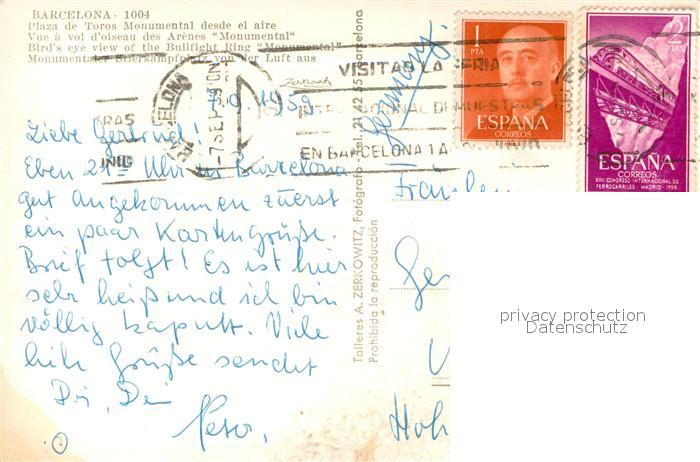 BARCELONA - 1004
Plaza de Toros Monumental desde el aire
Vue à vol d'oiseau des Arènes "Monumental"
Bird's eye view of the Bullfight Ring "Monumental"
Monumental Stierkampfplatz von der Luft aus
7.9.1959
Liebe Gertrud!
Eben Uhr in Barcelona
gut angekommen zuerst
ein paar Kartengrüße.
Brief folgt! Es ist hier
sehr heiß und ich bin
völlig kaputt. Viele
Grüße sendet
Dir, Dein
Talleres A. ZERKOWITZ, Fotógrafo - Tel. 21 42 55 - Barcelona
Prohibida la reproducción
Zerkowitz
Germany
VISITAD LA FERIA
INTERNACIONAL DE MUESTRAS
EN BARCELONA 1 A
BARCELONA
1 PTA
ESPAÑA
CORREOS
2 PTAS
ESPAÑA
CORREOS
XVII CONGRESO INTERNACIONAL DE
FERROCARRILES - MADRID - 1958
Fräulein
privacy protection
Datenschutz